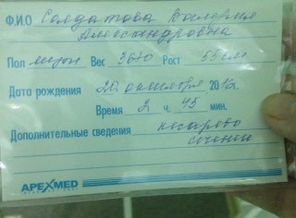 Ф.И.О Солдатова Валерия
Александровна
Пол Вес 3670 Рост 55 см
Дата рождения 20 октября 2012
Время 2 ч 45 мин.
Дополнительные сведения кесарево
сечение
APEXMED